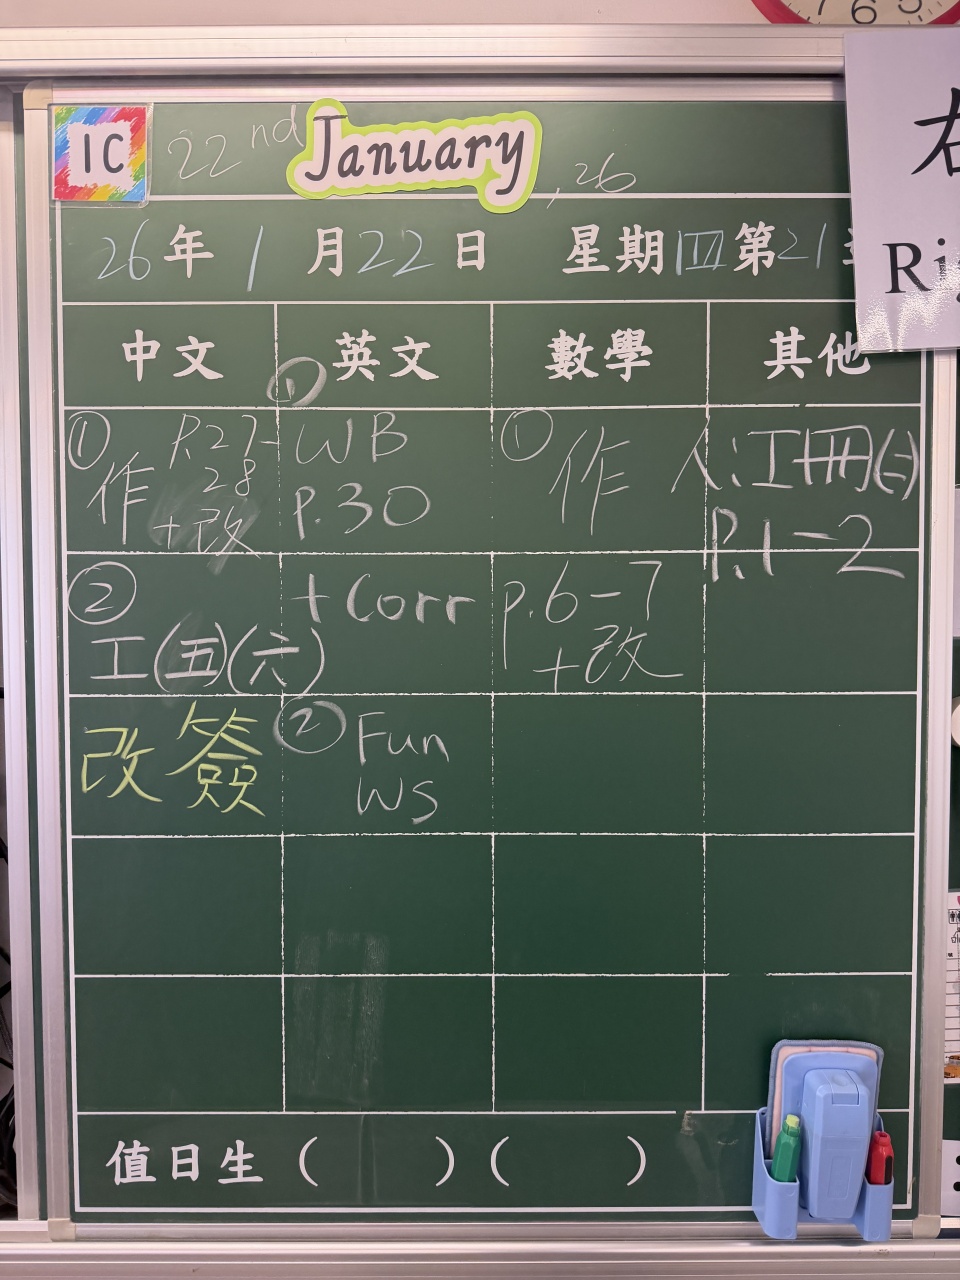 6 5
1C 22nd January, 26
右
26年1月22日 星期四 第21
中文 英文 數學 其他
① P.27-28
作+改
② 工(五)(六)
改簽
① WB
P.30
+Corr
② Fun
WS
① 作
p.6-7
+改
人工冊(二)
P.1-2
值日生( )( )